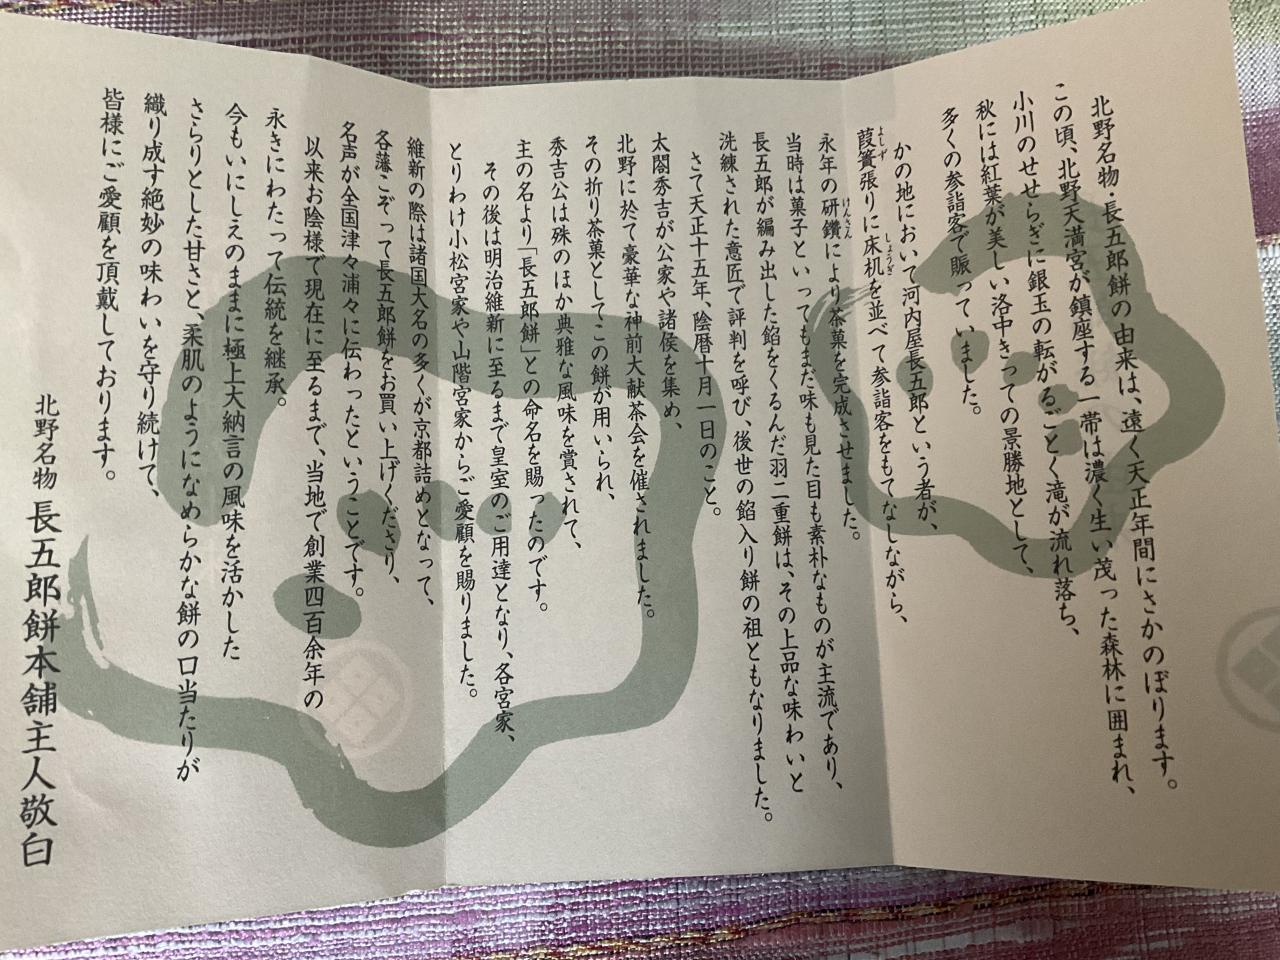 北野名物・長五郎餅の由来は、遠く天正年間にさかのぼります。
この頃、北野天満宮が鎮座する一帯は濃く生い茂った森林に囲まれ、
小川のせせらぎに銀玉の転がるごとく滝が流れ落ち、
秋には紅葉が美しい洛中きっての景勝地として、
多くの参詣客で賑っていました。
かの地において河内屋長五郎という者が、
葭簀張りに床机を並べて参詣客をもてなしながら、
よしず
しょうぎ
永年の研鑽により茶菓を完成させました。
けんさん
当時は菓子といってもまだ味も見た目も素朴なものが主流であり、
長五郎が編み出した餡をくるんだ羽二重餅は、その上品な味わいと
洗練された意匠で評判を呼び、後世の餡入り餅の祖ともなりました。
さて天正十五年、陰暦十月一日のこと。
太閤秀吉が公家や諸侯を集め、
北野に於て豪華な神前大献茶会を催されました。
その折り茶菓としてこの餅が用いられ、
秀吉公は殊のほか典雅な風味を賞されて、
主の名より「長五郎餅」との命名を賜ったのです。
その後は明治維新に至るまで皇室のご用達となり、各宮家、
とりわけ小松宮家や山階宮家からご愛顧を賜りました。
維新の際は諸国大名の多くが京都詰めとなって、
各藩こぞって長五郎餅をお買い上げくださり、
名声が全国津々浦々に伝わったということです。
以来お陰様で現在に至るまで、当地で創業四百余年の
永きにわたって伝統を継承。
今もいにしえのままに極上大納言の風味を活かした
さらりとした甘さと、柔肌のようになめらかな餅の口当たりが
織り成す絶妙の味わいを守り続けて、
皆様にご愛顧を頂戴しております。
北野名物 長五郎餅本舗主人敬白